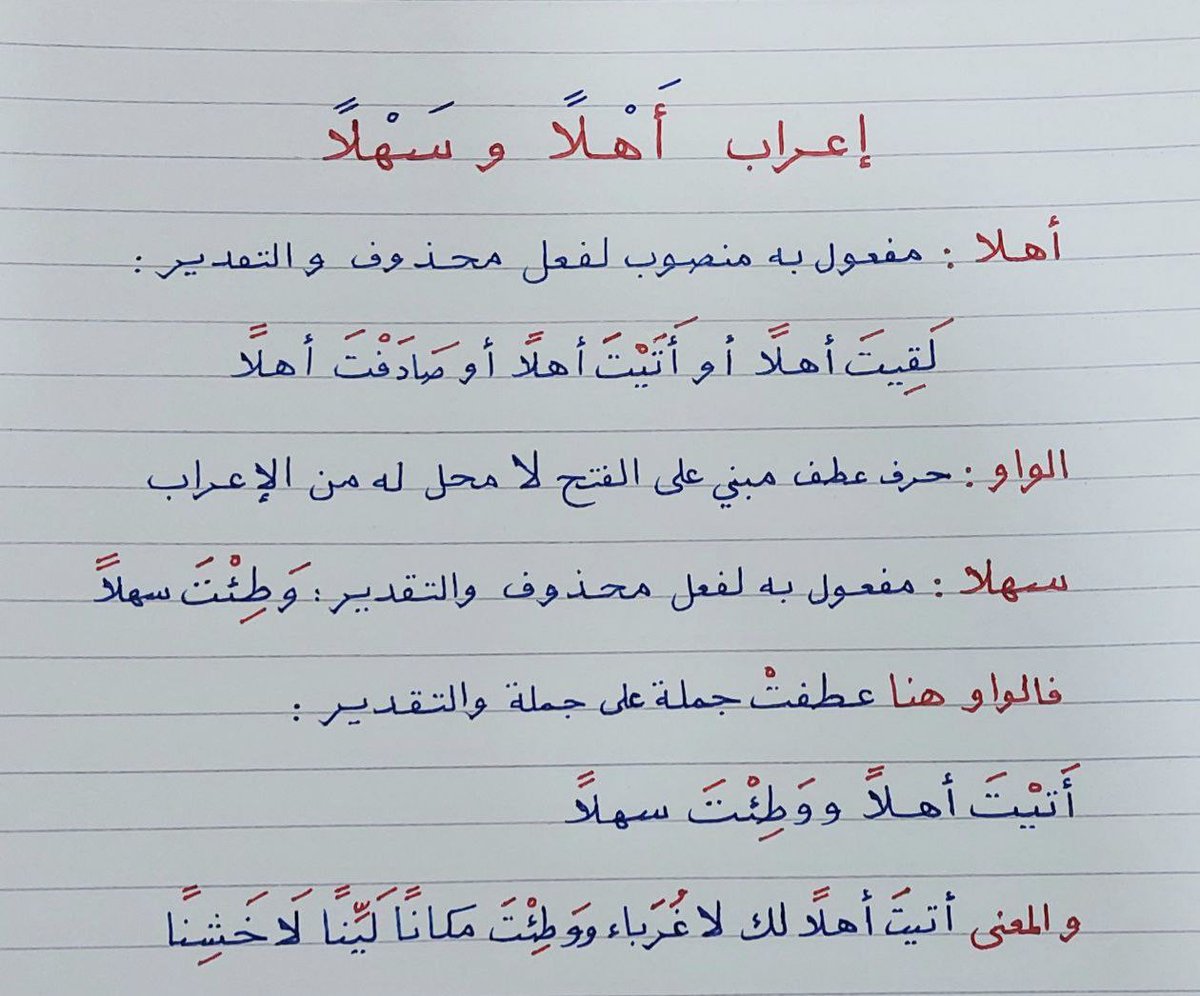 إعراب أَهْلًا و سَهْلًا
أهلا : مفعول به منصوب لفعل محذوف والتقدير :
لَقِيتَ أهلًا أو أَتَيْتَ أهلًا أو صَادَفْتَ أهلًا
الواو : حرف عطف مبني على الفتح لا محل له من الإعراب
سهلا : مفعول به لفعل محذوف والتقدير : وَطِئْتَ سهلًا
فالواو هنا عطفتْ جملة على جملة والتقدير :
أَتيْتَ أهلًا ووَطِئْتَ سهلًا
والمعنى أتيتَ أهلًا لك لا غُرَباء ووَطِئْتَ مكانًا لَيِّنًا لَا خَشِنًا